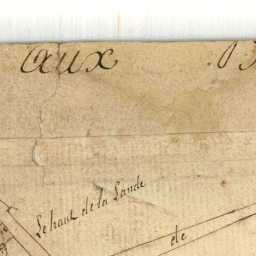 aux
Le haut de la Lande
de